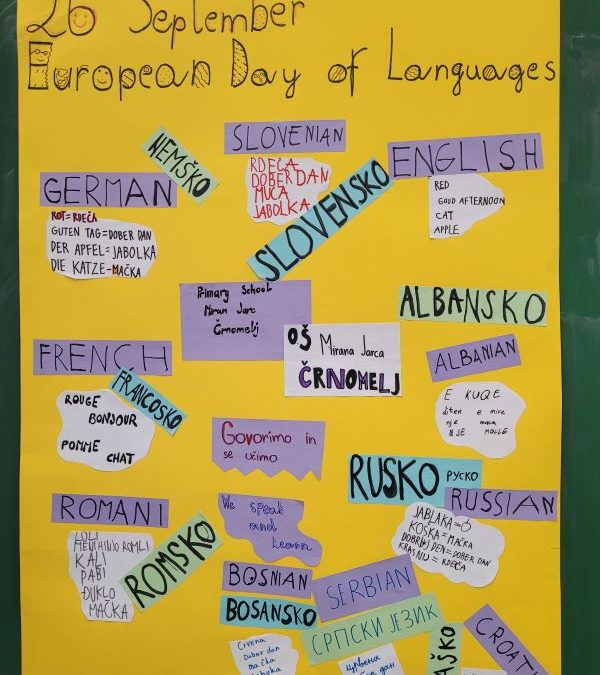 26 September
European Day of Languages
NEMŠKO
SLOVENIAN
RDEČA
DOBER DAN
MUCA
JABOLKA
SLOVENSKO
ENGLISH
RED
GOOD AFTERNOON
CAT
APPLE
GERMAN
ROT=RDEČA
GUTEN TAG=DOBER DAN
DER APFEL=JABOLKA
DIE KATZE-MAČKA
Primary School
Miran Jarc
Črnomelj
OŠ Mirana Jarca
ČRNOMELJ
ALBANSKO
ALBANIAN
E KUQE
diten e mire
nje maca
NJE MOLLË
FRENCH
FRANCOSKO
ROUGE
BONJOUR
POMME
CHAT
Govorimo in
se učimo
We speak
and
Learn
RUSKO
РУСКО
RUSSIAN
JABLAKA=
KOŠKA=MAČKA
DOBRIJ DEN=DOBER DAN
KRASNIJ=RDEČA
ROMANI
ROMSKO
LOLI
KALI
PABI
ĐUKLO
MAČKA
BOSNIAN
BOSANSKO
Crvena
Dobar dan
mačka
SERBIAN
СРПСКИ ЈЕЗИК
црвена
дан
AŠKO
CROATI